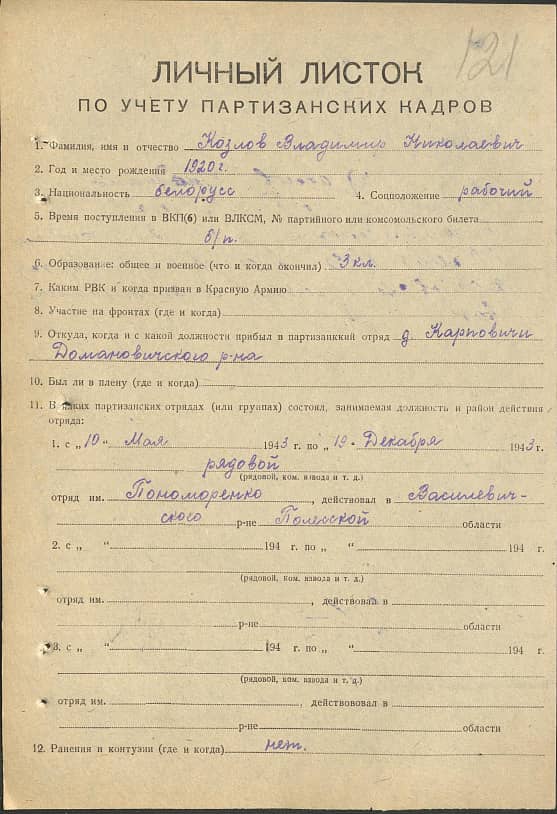 121
ЛИЧНЫЙ ЛИСТОК
ПО УЧЕТУ ПАРТИЗАНСКИХ КАДРОВ
1. Фамилия, имя и отчество Козлов Владимир Николаевич
2. Год и место рождения 1920 г.
3. Национальность белорусс 4. Соцположение рабочий
5. Время поступления в ВКП(б) или ВЛКСМ, № партийного или комсомольского билета
б/п.
6. Образование: общее и военное (что и когда окончил) 3 кл.
7. Каким РВК и когда призван в Красную Армию
8. Участие на фронтах (где и когда)
9. Откуда, когда и с какой должности прибыл в партизанский отряд д Карповичи
Домановичского р-на
10. Был ли в плену (где и когда)
11. В каких партизанских отрядах (или группах) состоял, занимаемая должность и район действия
отряда:
1. с „10" Мая 1943 г. по „19" Декабря 1943 г.
рядовой
(рядовой, ком. взвода и т. д.)
отряд им. Пономоренко, действовал в Василевич-
ского р-не Полесской области
2. с „ " 194 г. по „ " 194 г.
(рядовой, ком. взвода и т. д.)
отряд им. , действовал в
р-не области
3. с „ " 194 г. по „ " 194 г.
(рядовой, ком. взвода и т. д.)
отряд им. , действововал в
р-не области
12. Ранения и контузии (где и когда) нет.